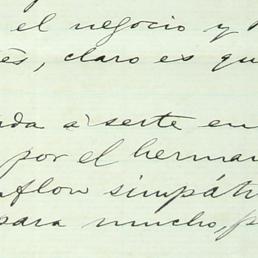 el negocio y
claro es que
a serte en
por el herman
flow simpáti
para mucho, p